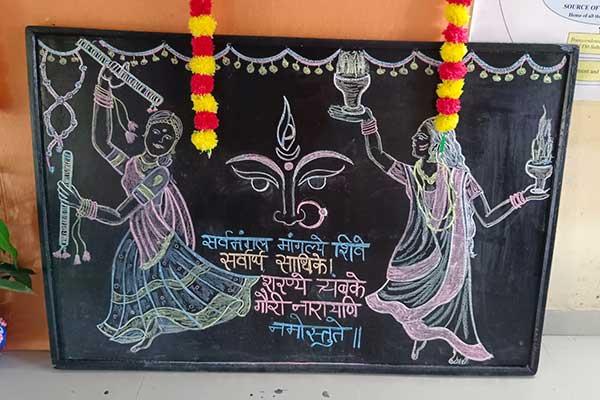 SOURCE OF
Home of all the
सर्वमंगल मांगल्ये शिवे
सर्वार्थ साधिके।
शरण्ये त्र्यंबके
गौरी नारायणि
नमोस्तुते॥